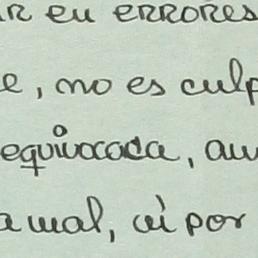 en errores
, no es culp
equivocada, au
mal, ni por